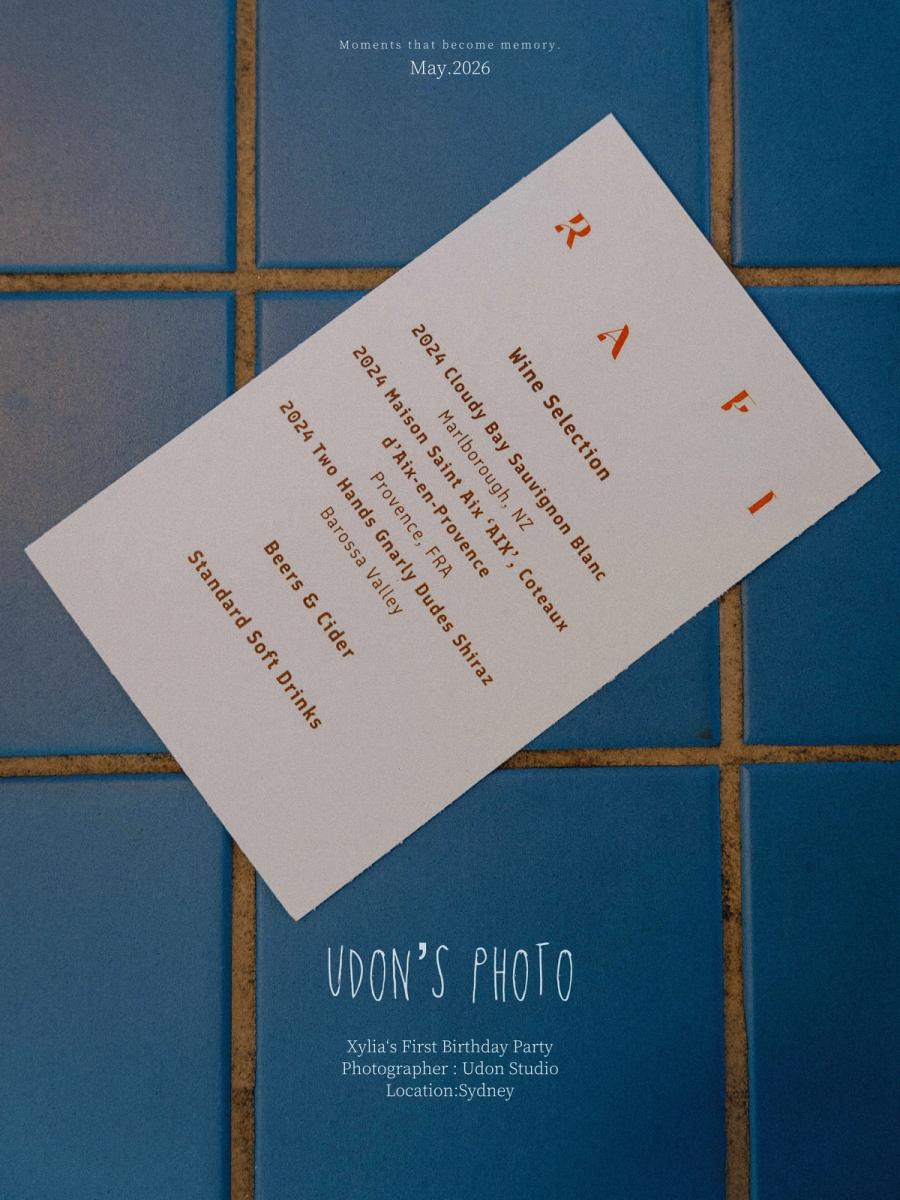 Moments that become memory.
May.2026
R A F I
Wine Selection
2024 Cloudy Bay Sauvignon Blanc
Marlborough, NZ
2024 Maison Saint Aix ‘AIX’, Coteaux
d’Aix-en-Provence
Provence, FRA
2024 Two Hands Gnarly Dudes Shiraz
Barossa Valley
Beers & Cider
Standard Soft Drinks
UDON’S PHOTO
Xylia‘s First Birthday Party
Photographer : Udon Studio
Location:Sydney